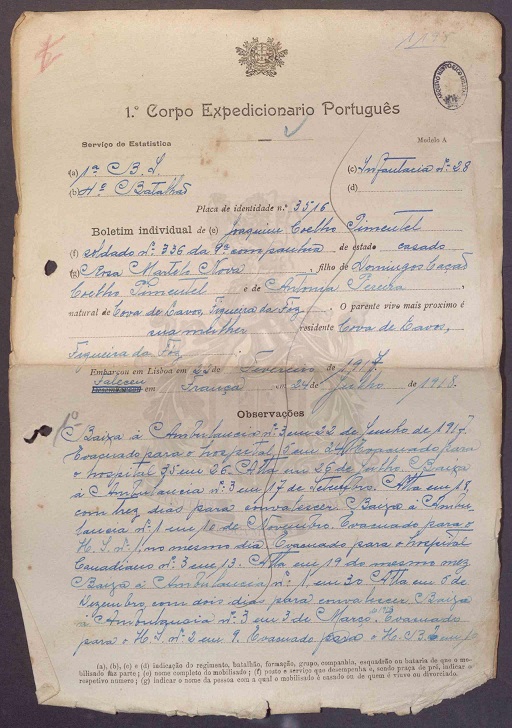 1198
ARQUIVO HISTORICO MILITAR
1.º Corpo Expedicionario Português
Serviço de Estatistica
Modelo A
(a) 1ª C B. L. (c) Infantaria Nº 28
(b) 4º C Batalhão (d)
Placa de identidade n.º 3516
Boletim individual de (e) Joaquim Coelho Pimentel
(f) soldado nº 336 da 9ª companhia de estado casado
(g) Rosa Nova , filho de Domingos
Coelho Pimentel e de Antonia Pereira ,
natural de Cova de Lavos, Figueira da Foz . O parente vivo mais proximo é
sua mulher residente Cova de Lavos,
Figueira da Foz
Embarcou em Lisboa em 22 de Fevereiro de 1917.
Faleceu
em França em 24 de Julho de 1918.
Observações
1º
Baixa á Ambulancia nº 3 em 22 de Junho de 1917.
Evacuado para o hospital 5 em 24. Evacuado para
o hospital 35 em 26. Alta em 29 de Junho. Baixa
á Ambulancia nº 3 em 17 de Setembro. Alta em 18
com trez dias para convalescer. Baixa á Ambu-
lancia nº 1 em 10 de Novembro. Evacuado para o
H. S. nº 1, no mesmo dia. Evacuado para o hospital
Canadiano nº 3 em 13. Alta em 19 do mesmo mez
Baixa á Ambulancia nº 1 em 30. Alta em 5 de
Dezembro, com dois dias para convalescer. Baixa
á Ambulancia nº 3 em 3 de Março. Evacuado
para o H. S. nº 2 em 9. Evacuado para o H. B. em
(a), (b), (c) e (d) indicação do regimento, batalhão, formação, grupo, companhia, esquadrão ou bataria de que o mo-
bilisado faz parte; (e) nome completo do mobilisado; (f) posto e serviço que desempenha e, sendo praça de pré, indicar o
respetivo numero; (g) indicar o nome da pessoa com a qual o mobilisado é casado ou de quem é viuvo ou divorciado.